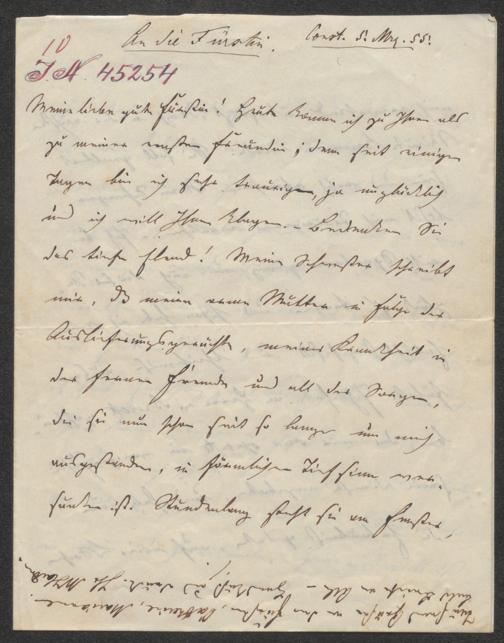 10
An die Fürstin. Const. 5. Mrz. 55.
I.N. 45254
Meine liebe gute Fürstin! Heute komme ich zu Ihnen als
zu meiner ersten Freundin; denn seit einigen
Tagen bin ich sehr traurig, ja unglücklich
und ich will Ihnen klagen. – Bedenken Sie
das tiefe Elend! Meine Schwester schreibt
mir, daß meine arme Mutter in Folge der
Auslieferungsgerüchte, meiner Krankheit in
der fernen Fremde und all der Sorgen,
die sie nun schon seit so lange um mich
ausgestanden, in förmlichen Tiefsinn ver-
sunken ist. Stundenlang steht sie am Fenster,